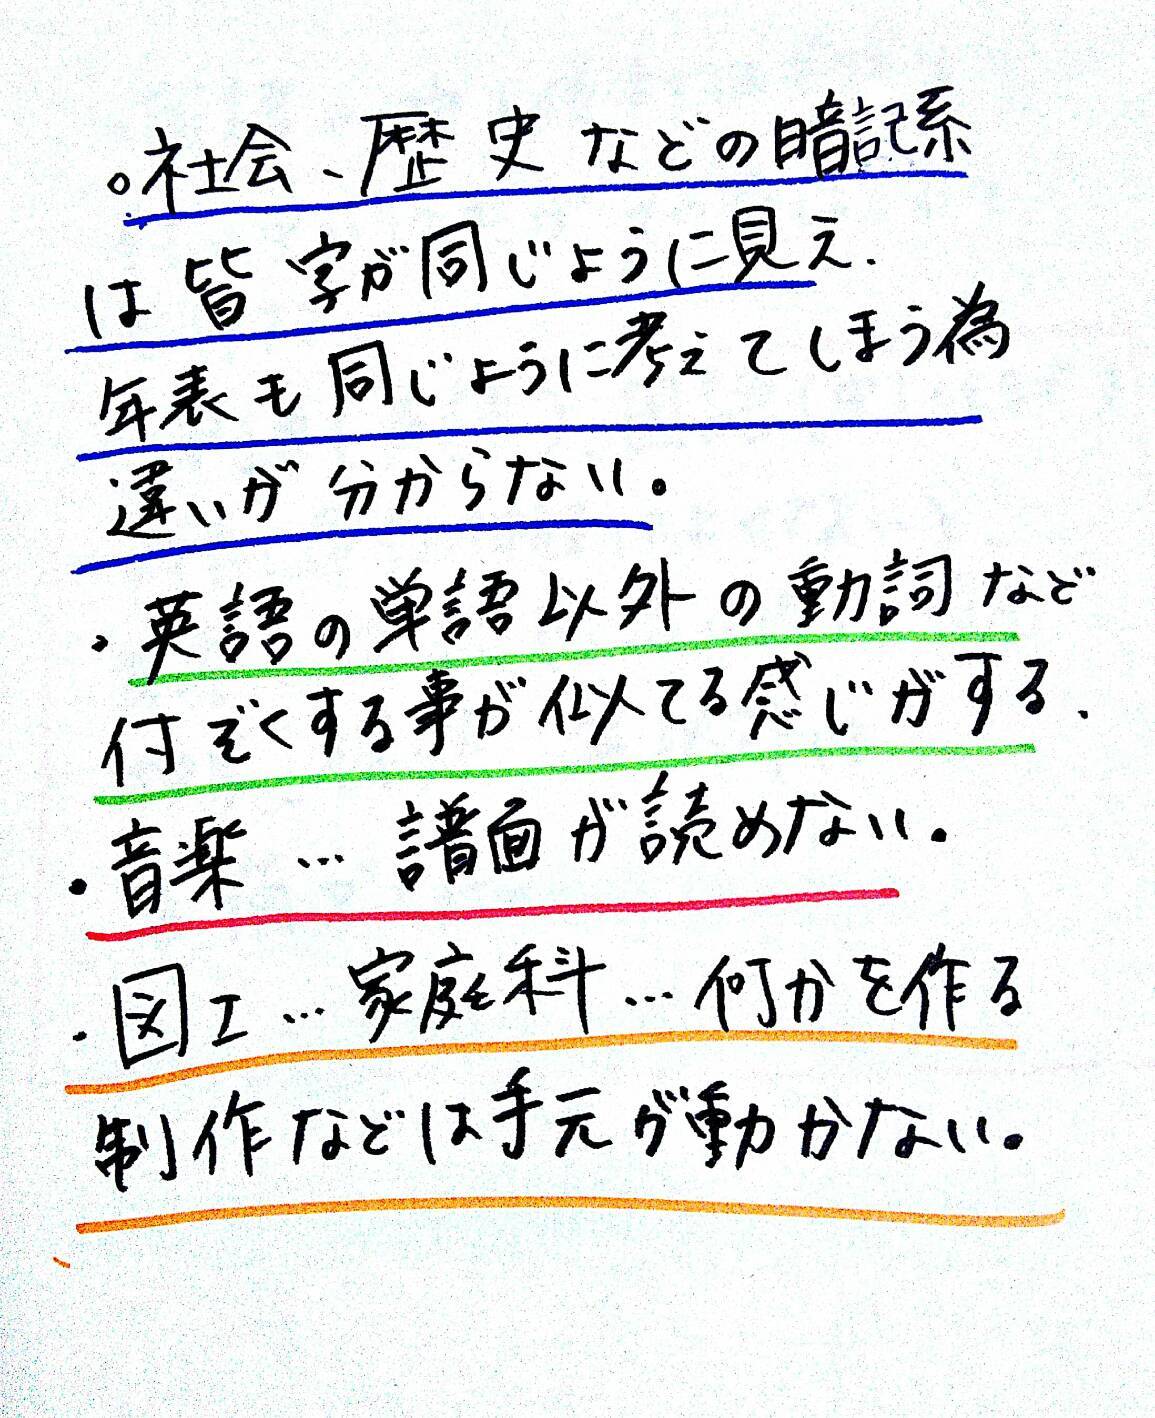 。社会、歴史などの暗記系
は皆字が同じように見え、
年表も同じように考えてしまう為
違いが分からない。
・英語の単語以外の動詞など
付ぞくする事が似てる感じがする、
・音楽…譜面が読めない。
・図工…家庭科…何かを作る
制作などは手元が動かない。